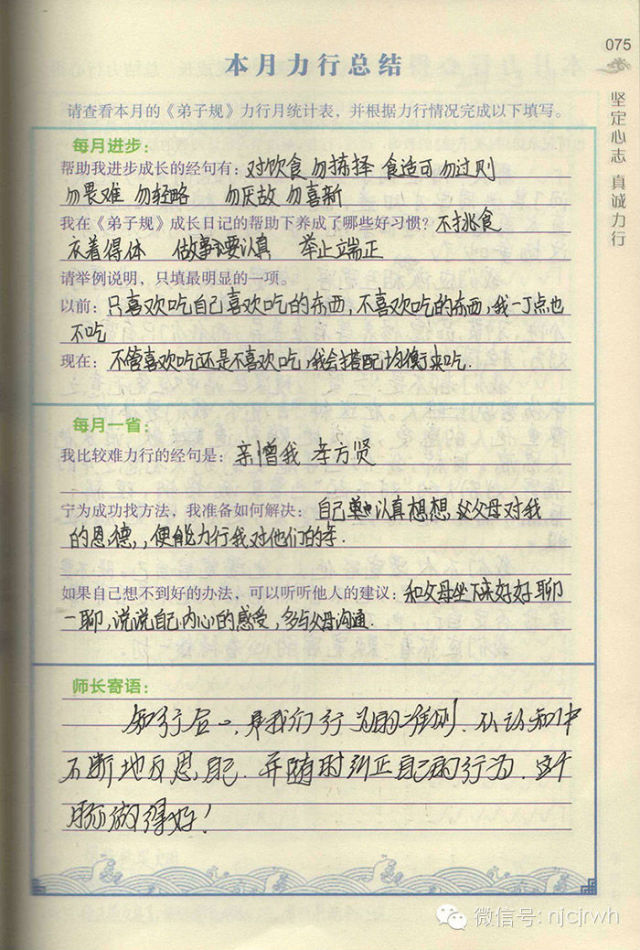 075
坚定心志 真诚力行
本月力行总结
请查看本月的《弟子规》力行月统计表，并根据力行情况完成以下填写。
每月进步：
帮助我进步成长的经句有：对饮食 勿拣择 食适可 勿过则
勿畏难 勿轻略 勿厌故 勿喜新
我在《弟子规》成长日记的帮助下养成了哪些好习惯？不挑食
衣着得体 做事要认真 举止端正
请举例说明，只填最明显的一项。
以前：只喜欢吃自己喜欢吃的东西，不喜欢吃的东西，我一丁点也
不吃
现在：不管喜欢吃还是不喜欢吃，我会搭配均衡来吃.
每月一省：
我比较难力行的经句是：亲憎我 孝方贤
宁为成功找方法，我准备如何解决：自己 认真想想，父母对我
的恩德，，便能力行我对他们的孝.
如果自己想不到好的办法，可以听听他人的建议：和父母坐下来好好聊
一聊，说说自己内心的感受，多与父母沟通.
师长寄语：
知行合一，是我们行为的准则.从认知中
不断地反思自己.并随时纠正自己的行为.这个
月你做得好！
微信号：njcjrwh